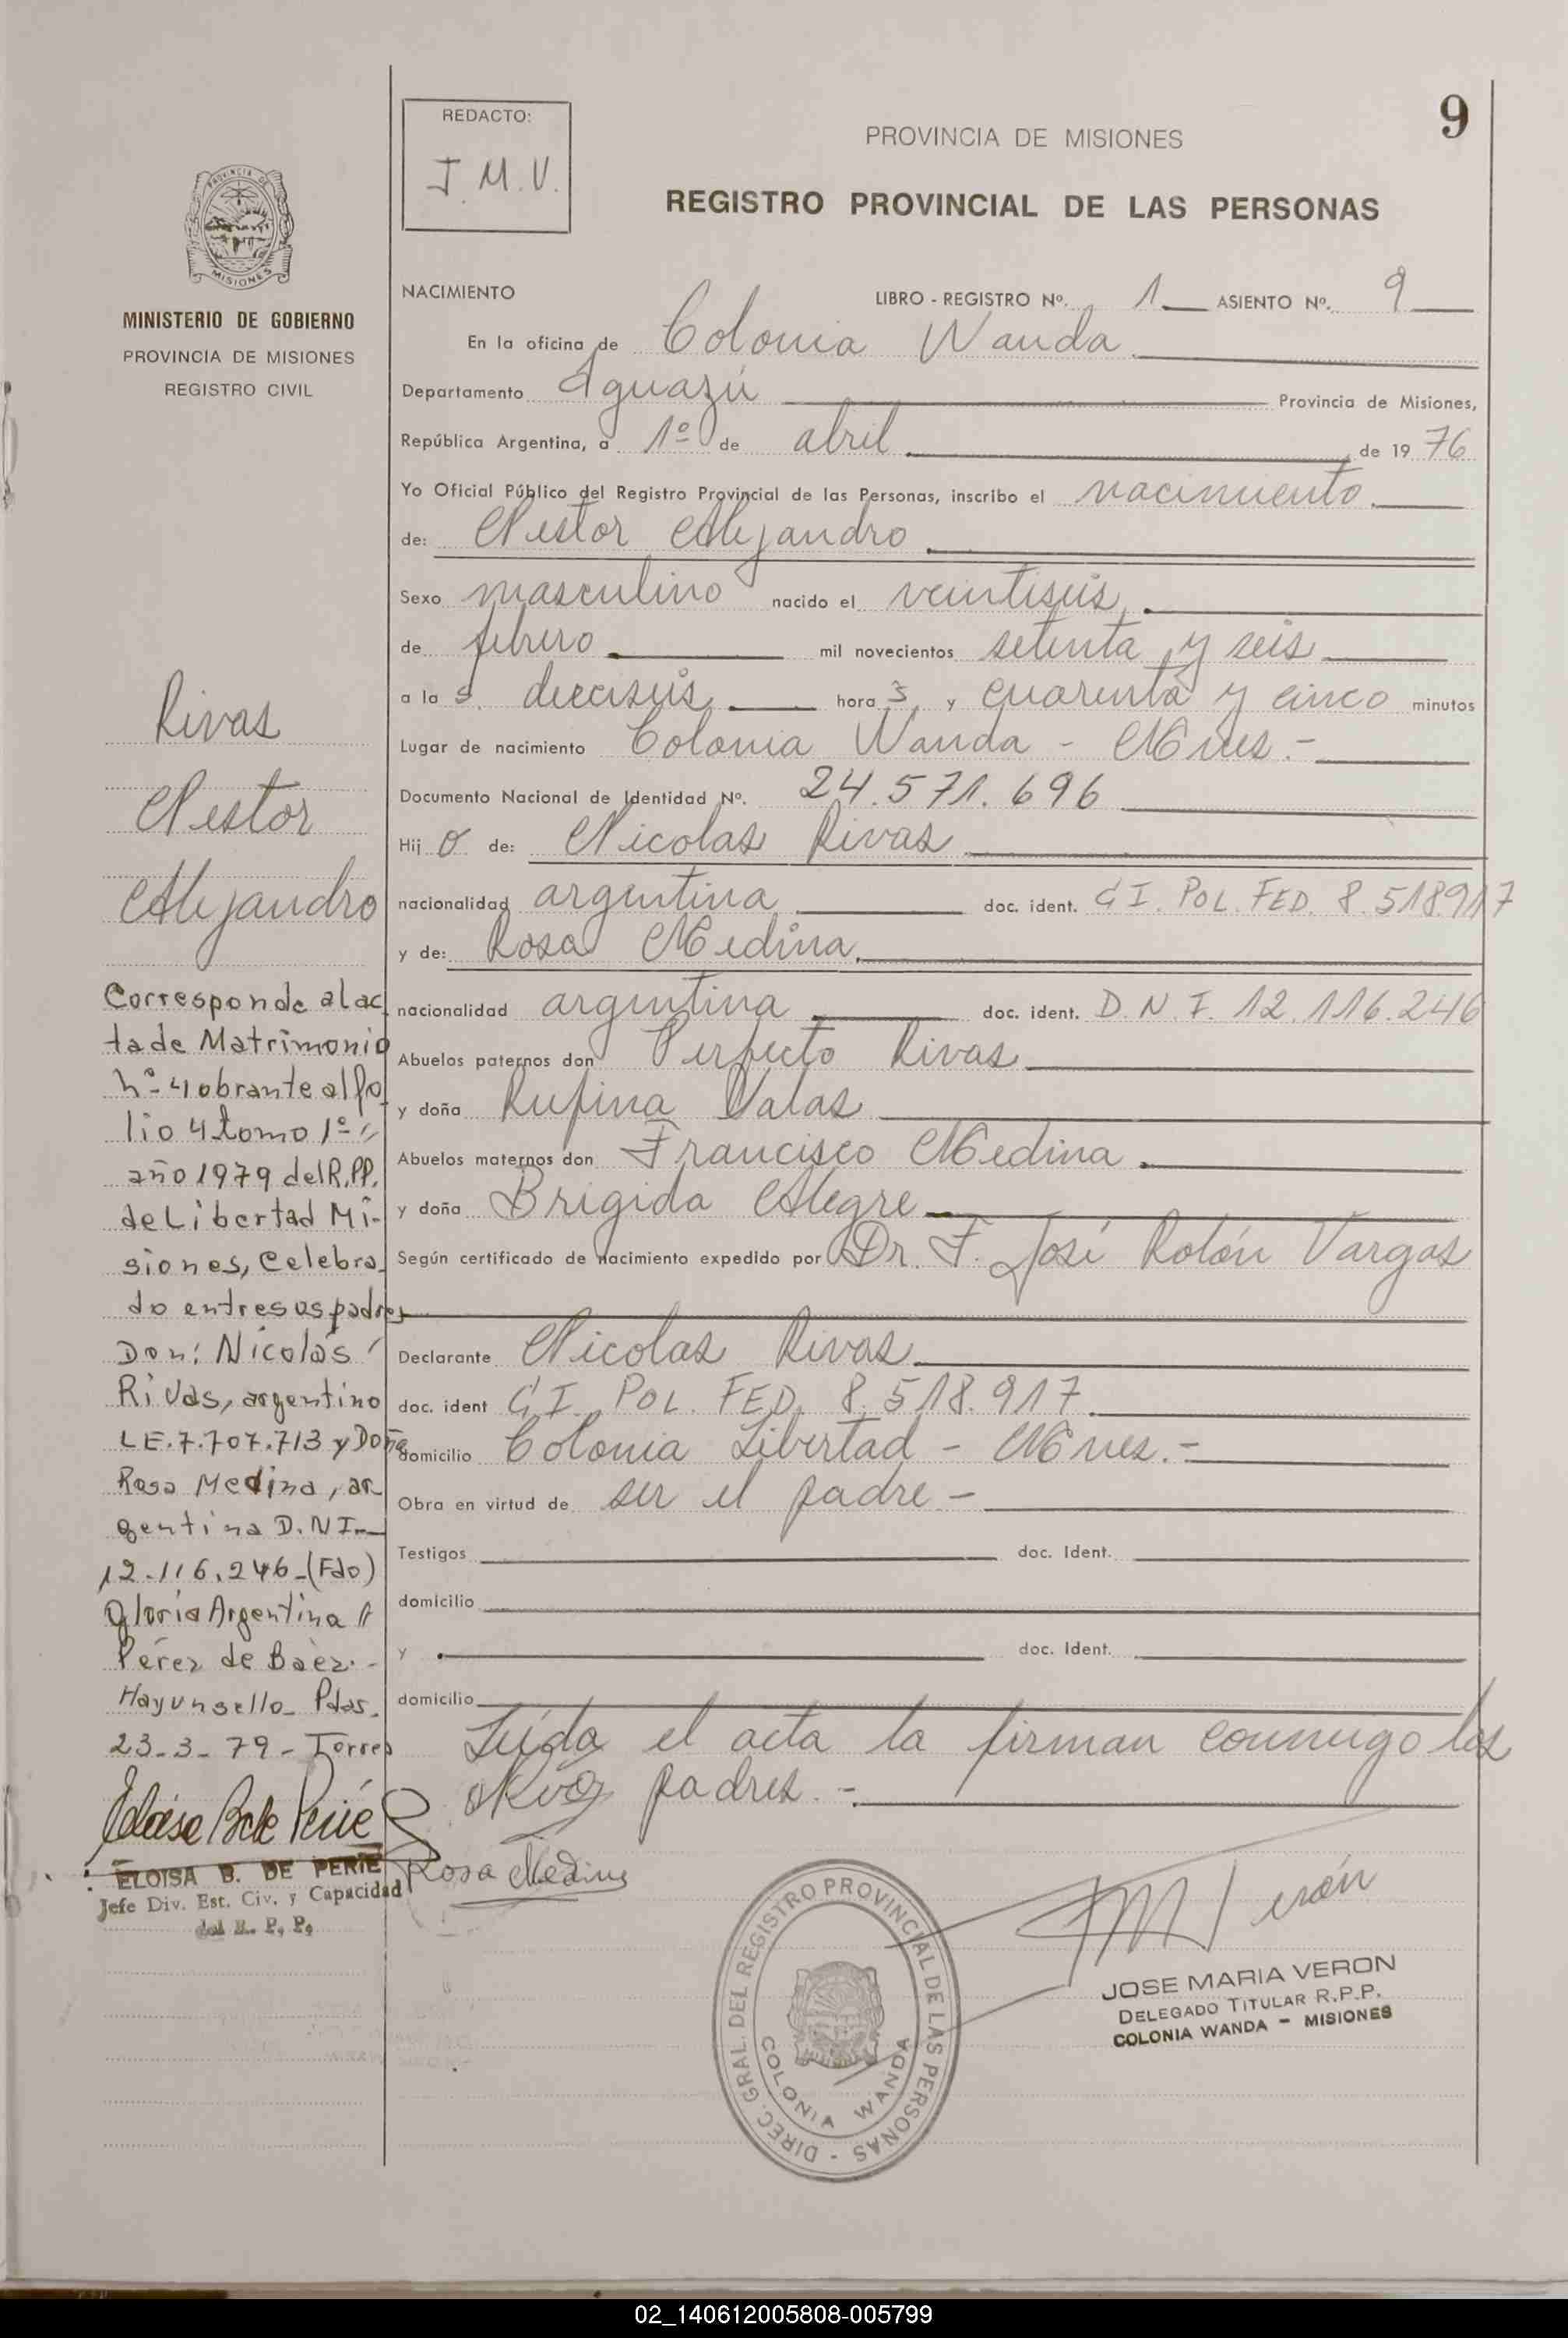 9
REDACTO:
J.M.V.
PROVINCIA DE MISIONES
REGISTRO PROVINCIAL DE LAS PERSONAS
MISIONES
MINISTERIO DE GOBIERNO
PROVINCIA DE MISIONES
REGISTRO CIVIL
NACIMIENTO LIBRO - REGISTRO Nº. 1 ASIENTO Nº. 9
En la oficina de Colonia Wanda
Departamento Iguazú Provincia de Misiones,
República Argentina, a 1º de abril de 1976
Yo Oficial Público del Registro Provincial de las Personas, inscribo el nacimiento
de: Nestor Alejandro
Sexo masculino nacido el veintiseis
de febrero mil novecientos setenta y seis
a la s. dieciseis hora s y cuarenta y cinco minutos
Lugar de nacimiento Colonia Wanda - Mnes.-
Documento Nacional de Identidad Nº. 24.571.696
Hij o de: Nicolas Rivas
nacionalidad argentina doc. ident. C.I. POL. FED. 8.518.917
y de: Rosa Medina
nacionalidad argentina doc. ident. D.N.I. 12.116.246
Abuelos paternos don Perfecto Rivas
y doña Rufina Valas
Abuelos maternos don Francisco Medina
y doña Brigida Alegre
Según certificado de nacimiento expedido por Dr. F. José Rolón Vargas
Declarante Nicolas Rivas
doc. ident C.I. POL. FED. 8.518.917
domicilio Colonia Libertad - Mnes.-
Obra en virtud de ser el padre -
Testigos doc. Ident.
domicilio
y doc. Ident.
domicilio
Leída el acta la firman conmigo los
padres.-
Rosa Medina
Rivas
Nestor
Alejandro
Corresponde al ac
ta de Matrimonio
nº-4 obrante al fo
lio 4 tomo 1º
año 1979 del R.PP.
de Libertad Mi-
siones, Celebra-
do entre sus padres
Don: Nicolás
Rivas, argentino
LE.7.707.713 y Doña
Rosa Medina, ar-
gentina D.NI-
12.116.246-(Fdo)
Gloria Argentina
Pérez de Baez.-
Hay un sello- Pdas.
23-3-79- Torres
ELOISA B. DE PERIE
Jefe Div. Est. Civ. y Capacidad
del R. P. P.
DIREC. GRAL. DEL REGISTRO PROVINCIAL DE LAS PERSONAS -
COLONIA WANDA
JOSE MARIA VERON
DELEGADO TITULAR R.P.P.
COLONIA WANDA - MISIONES
02_140612005808-005799